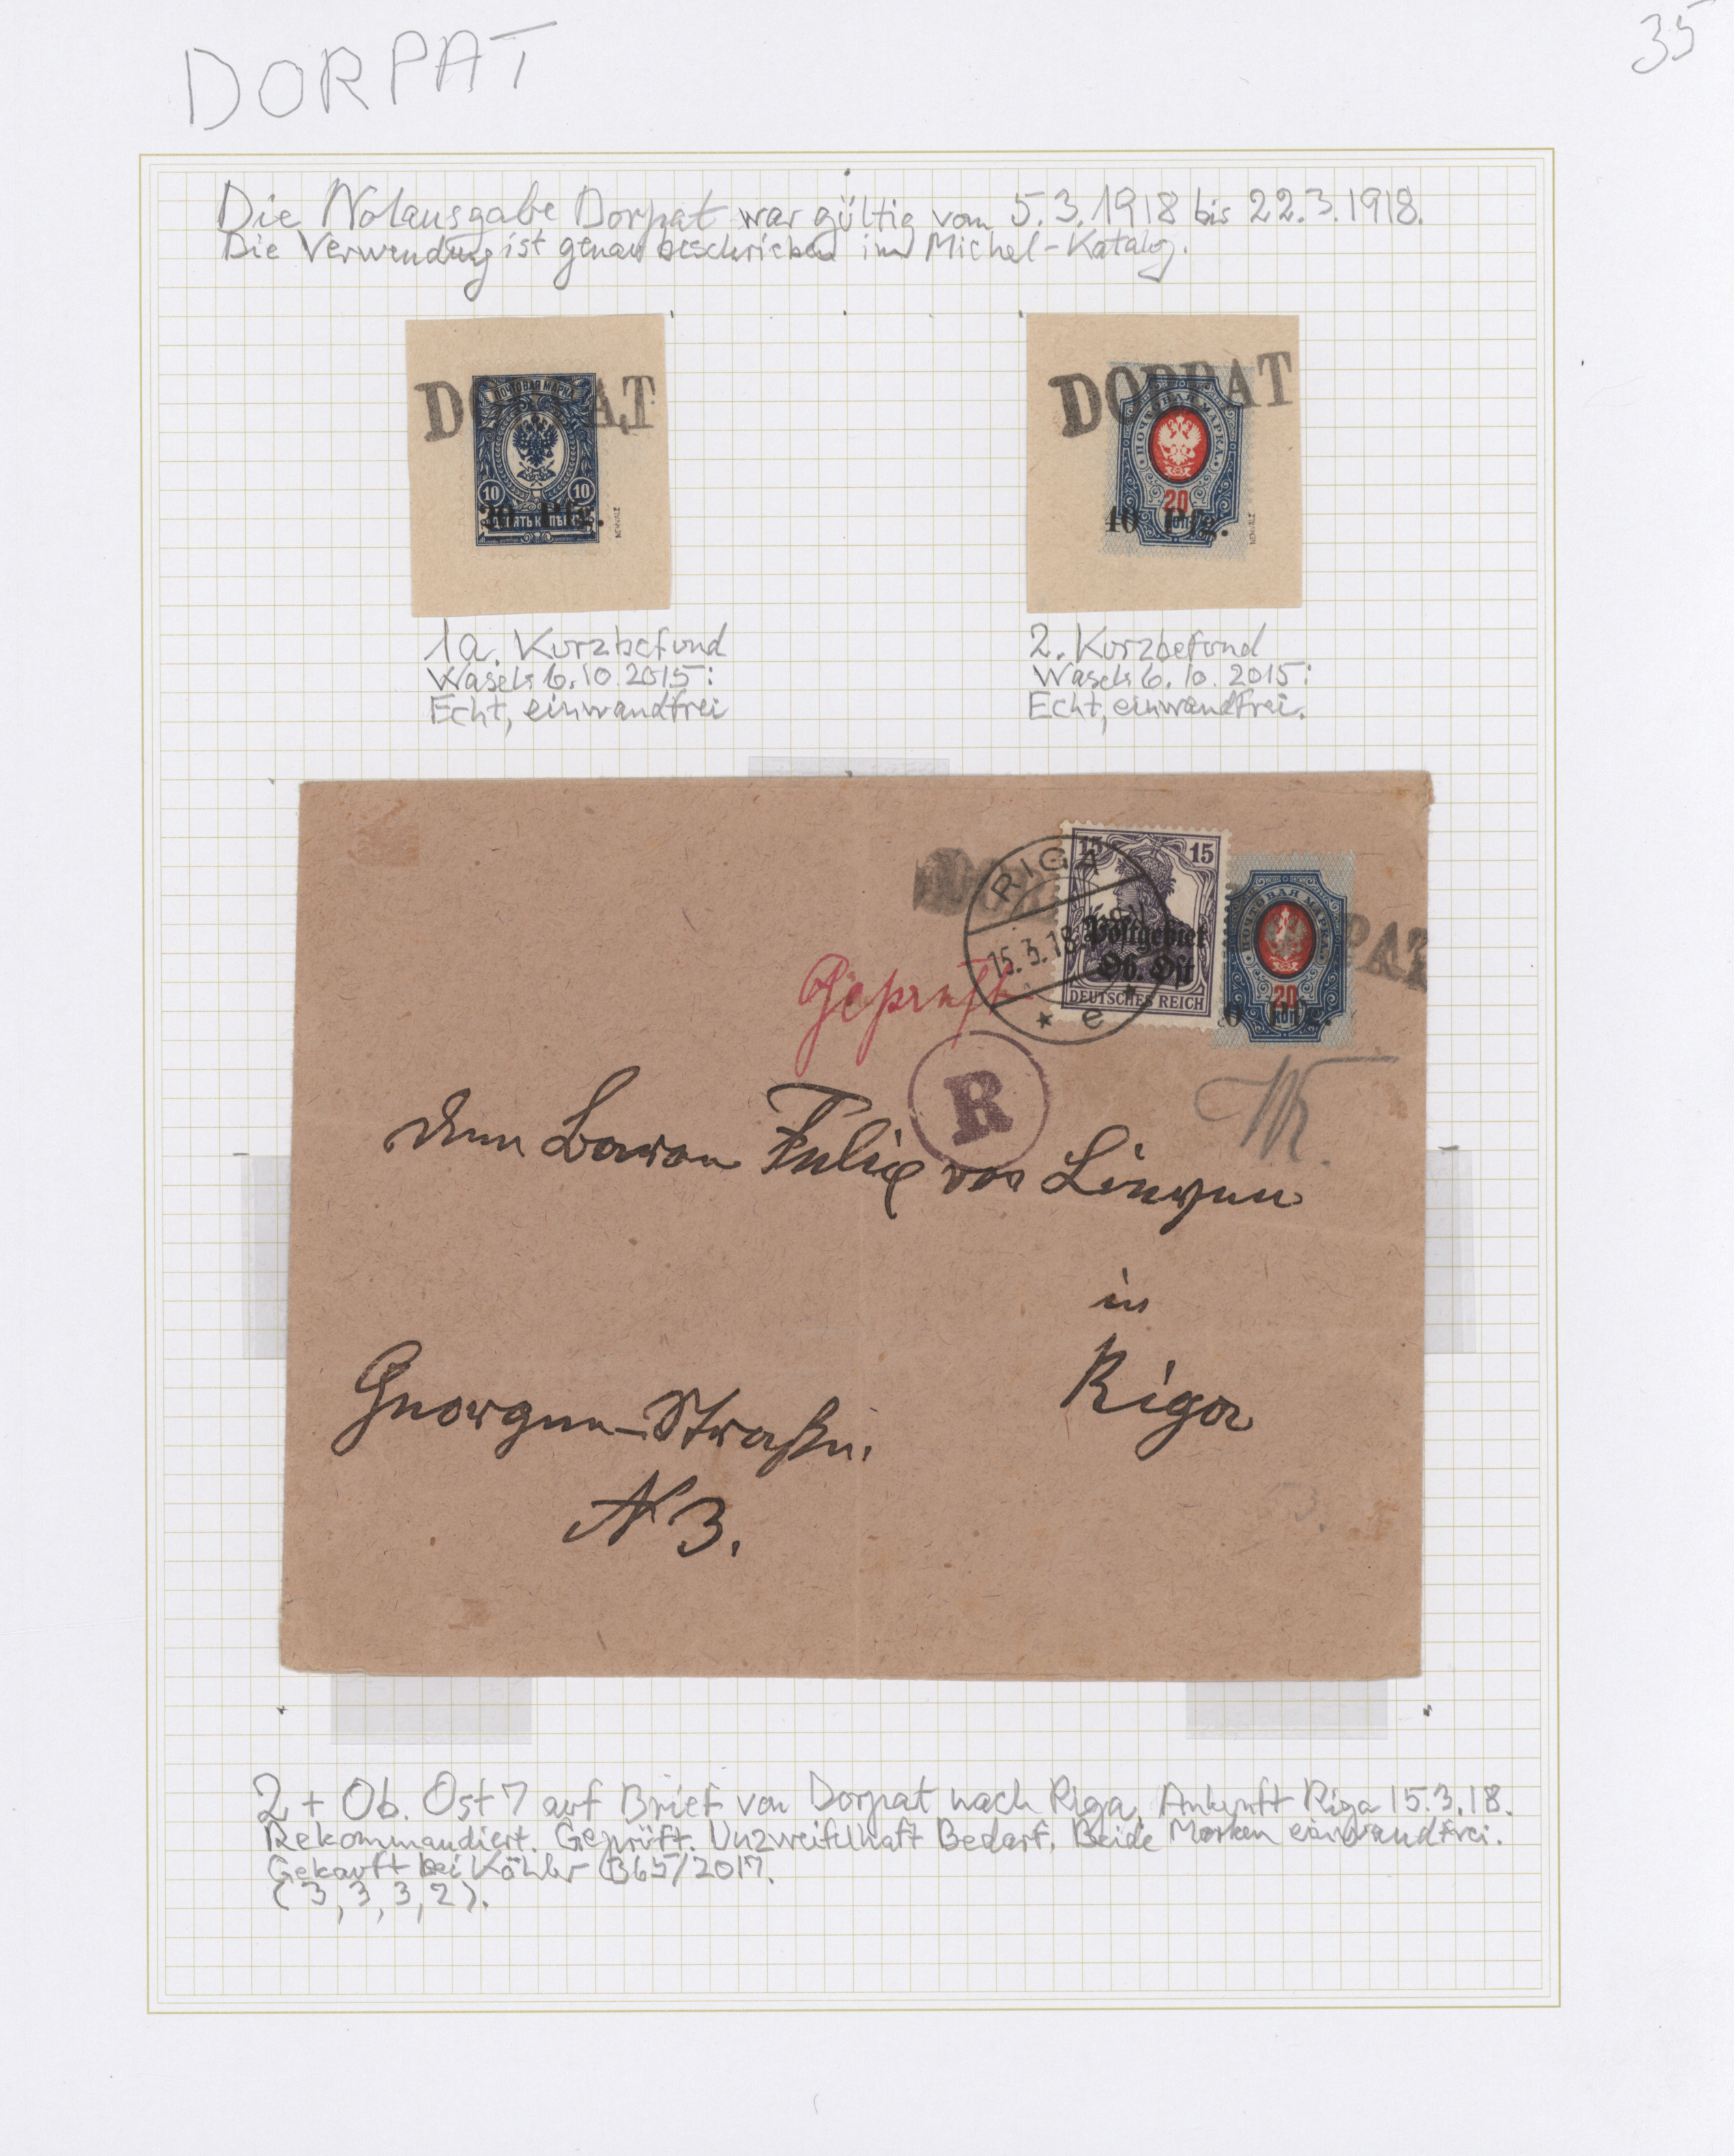 DORPAT
35
Die Notausgabe Dorpat war gültig vom 5.3.1918 bis 22.3.1918.
Die Verwendung ist genau beschrieben im Michel-Katalog.
DORPAT
ПОЧТОВАЯ МАРКА
10 10
20 Pfg.
ДЕСЯТЬ КОПѢЕКЪ
DORPAT
ПОЧТОВАЯ МАРКА
20
КОП
40 Pfg.
1a. Kurzbefund
Wasels 6.10.2015:
Echt, einwandfrei
2. Kurzbefund
Wasels 6.10.2015:
Echt, einwandfrei.
RIGA
15.3.18
e
15 15
Postgebiet
Ob. Ost
DEUTSCHES REICH
ПОЧТОВАЯ МАРКА
20
КОП
0 Pfg.
PAT
Geprüft
R
Dem Baron Felix von
in
Riga
Georgen-Straße.
N 3.
2 + Ob. Ost 7 auf Brief von Dorpat nach Riga, Ankunft Riga 15.3.18.
Rekommandiert. Geprüft. Unzweifelhaft Bedarf. Beide Marken einwandfrei.
Gekauft bei Köhler 365/2017.
(3,3,3,2).